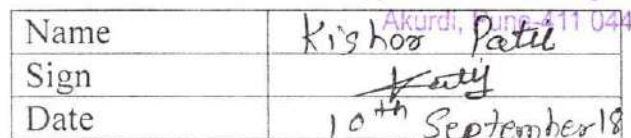 Akurdi, Pune-411 044
Name Kishor Patil
Sign
Date 10th September 18